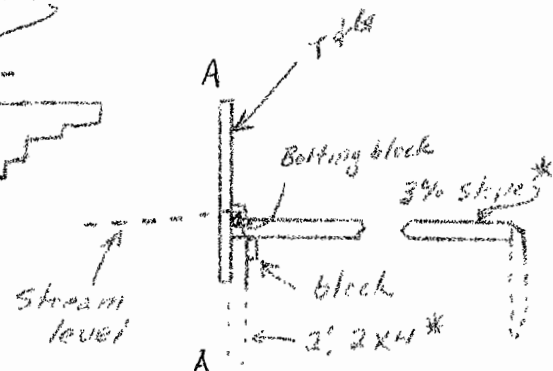 A
Bolting block
3% slope*
Stream
level
block
2', 2x4*
A